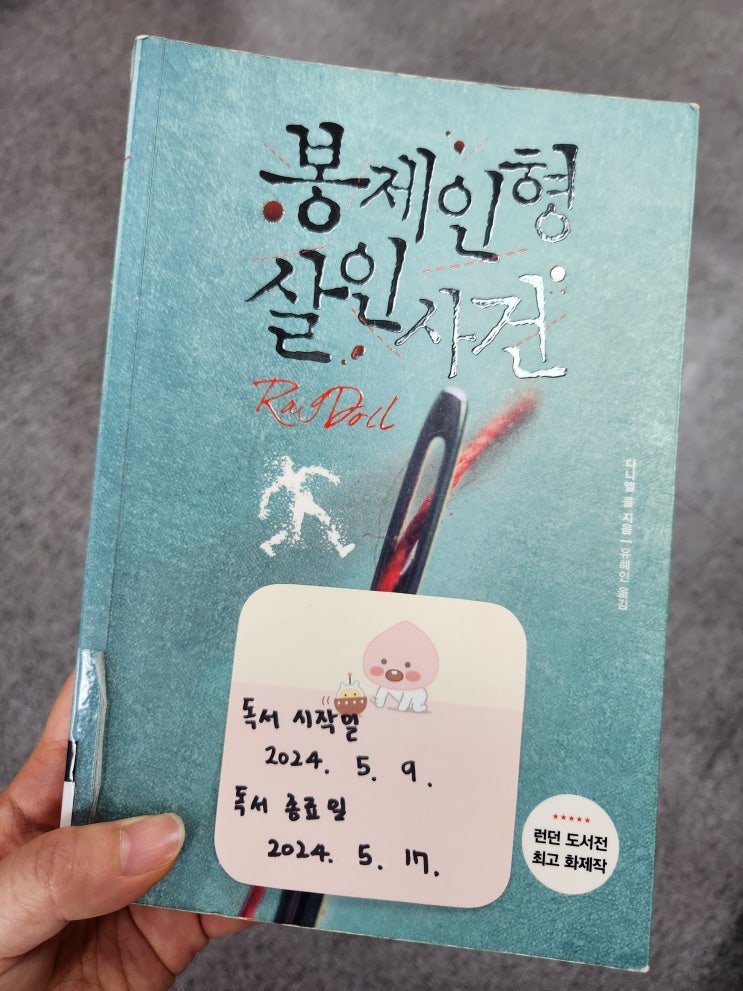 봉제인형
살인사건
RagDoll
다니엘 콜 지음 | 유혜인 옮김
독서 시작일
2024. 5. 9.
독서 종료일
2024. 5. 17.
★★★★★
런던 도서전
최고 화제작